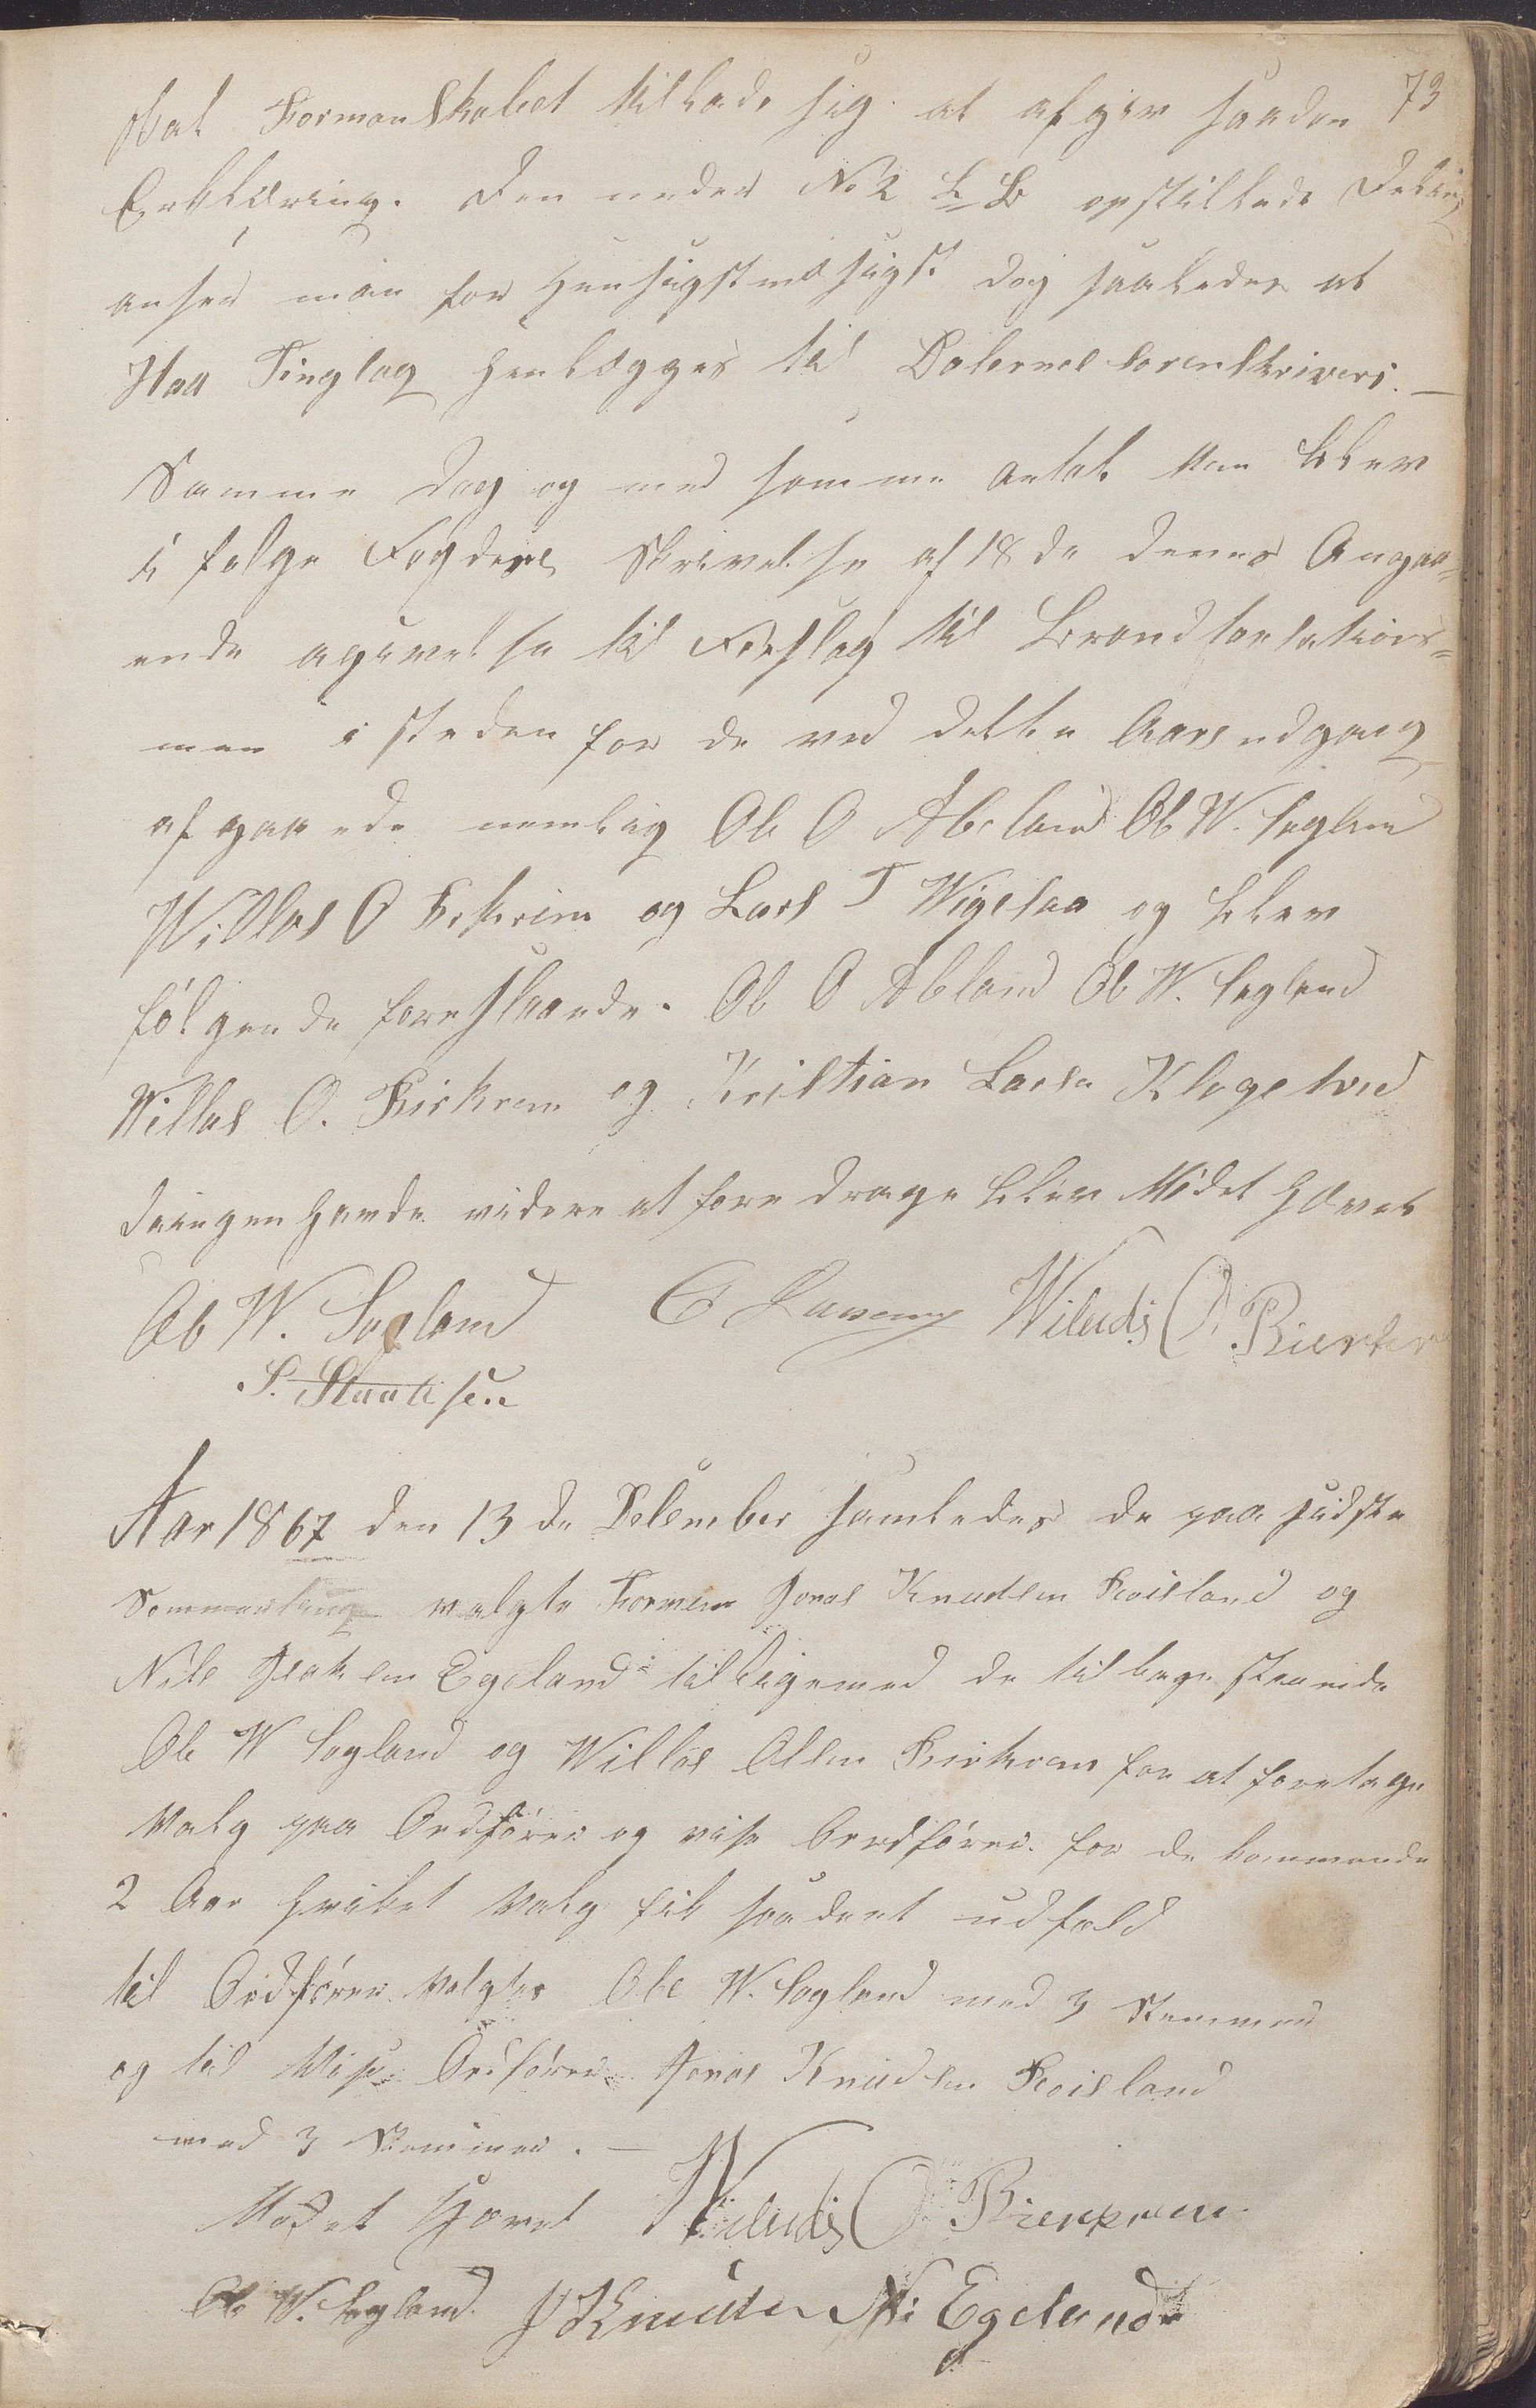 73
skal Formandskabet tillade sig at afgive saadan
Erklæring. Den under No 2 L B opstillede Deling
anser man for Hensigtmæsigst dog saaledes at
Haa Tinglag henlægges til Dalernes Sorenskriveri. —
Samme Dag og med samme antal Mæn blev
i følge Fogdens Skrivelse af 18de dennes Angaa=
ende agivelse til Forslag til Brandtaxations=
mæn i steden for de ved dette Aars udgang
afgaaende nemlig Ole O Abeland Ole W. Sogland
Willas O Birkrem og Lars T Wigesaa og blev
følgende foreslaaede. Ole O Abland Ole W. Sogland
Willas O. Birkrem og Kristian Larsen Klogetved
Da ingen havde videre at fore drage blev Mødet hævet
Ole W. Sogland Wiludis O. Bierkr
Aar 1867 den 13de Desember samledes de paa sidste
Sommerting valgte Formæn Jonas Knudsen Røisland og
Nils Isaksen Egeland tilligemed de tilbagestaaende
Ole W Sogland og Willas Olsen Birkrem for at foretage
Valg paa Ordfører og vise Ordfører for de kommende
2 Aar hvilket Valg fik saadant udfald
til Ordfører valgtes Ole W. Sogland med 3 Stemmer
og til Vise Ordfører Jonas Knudsen Røisland
med 3 Stemmer. —
Mødet hævet Wiludis O Bierkrem
Ole W. Sogland J Knudsen Ni Egelands